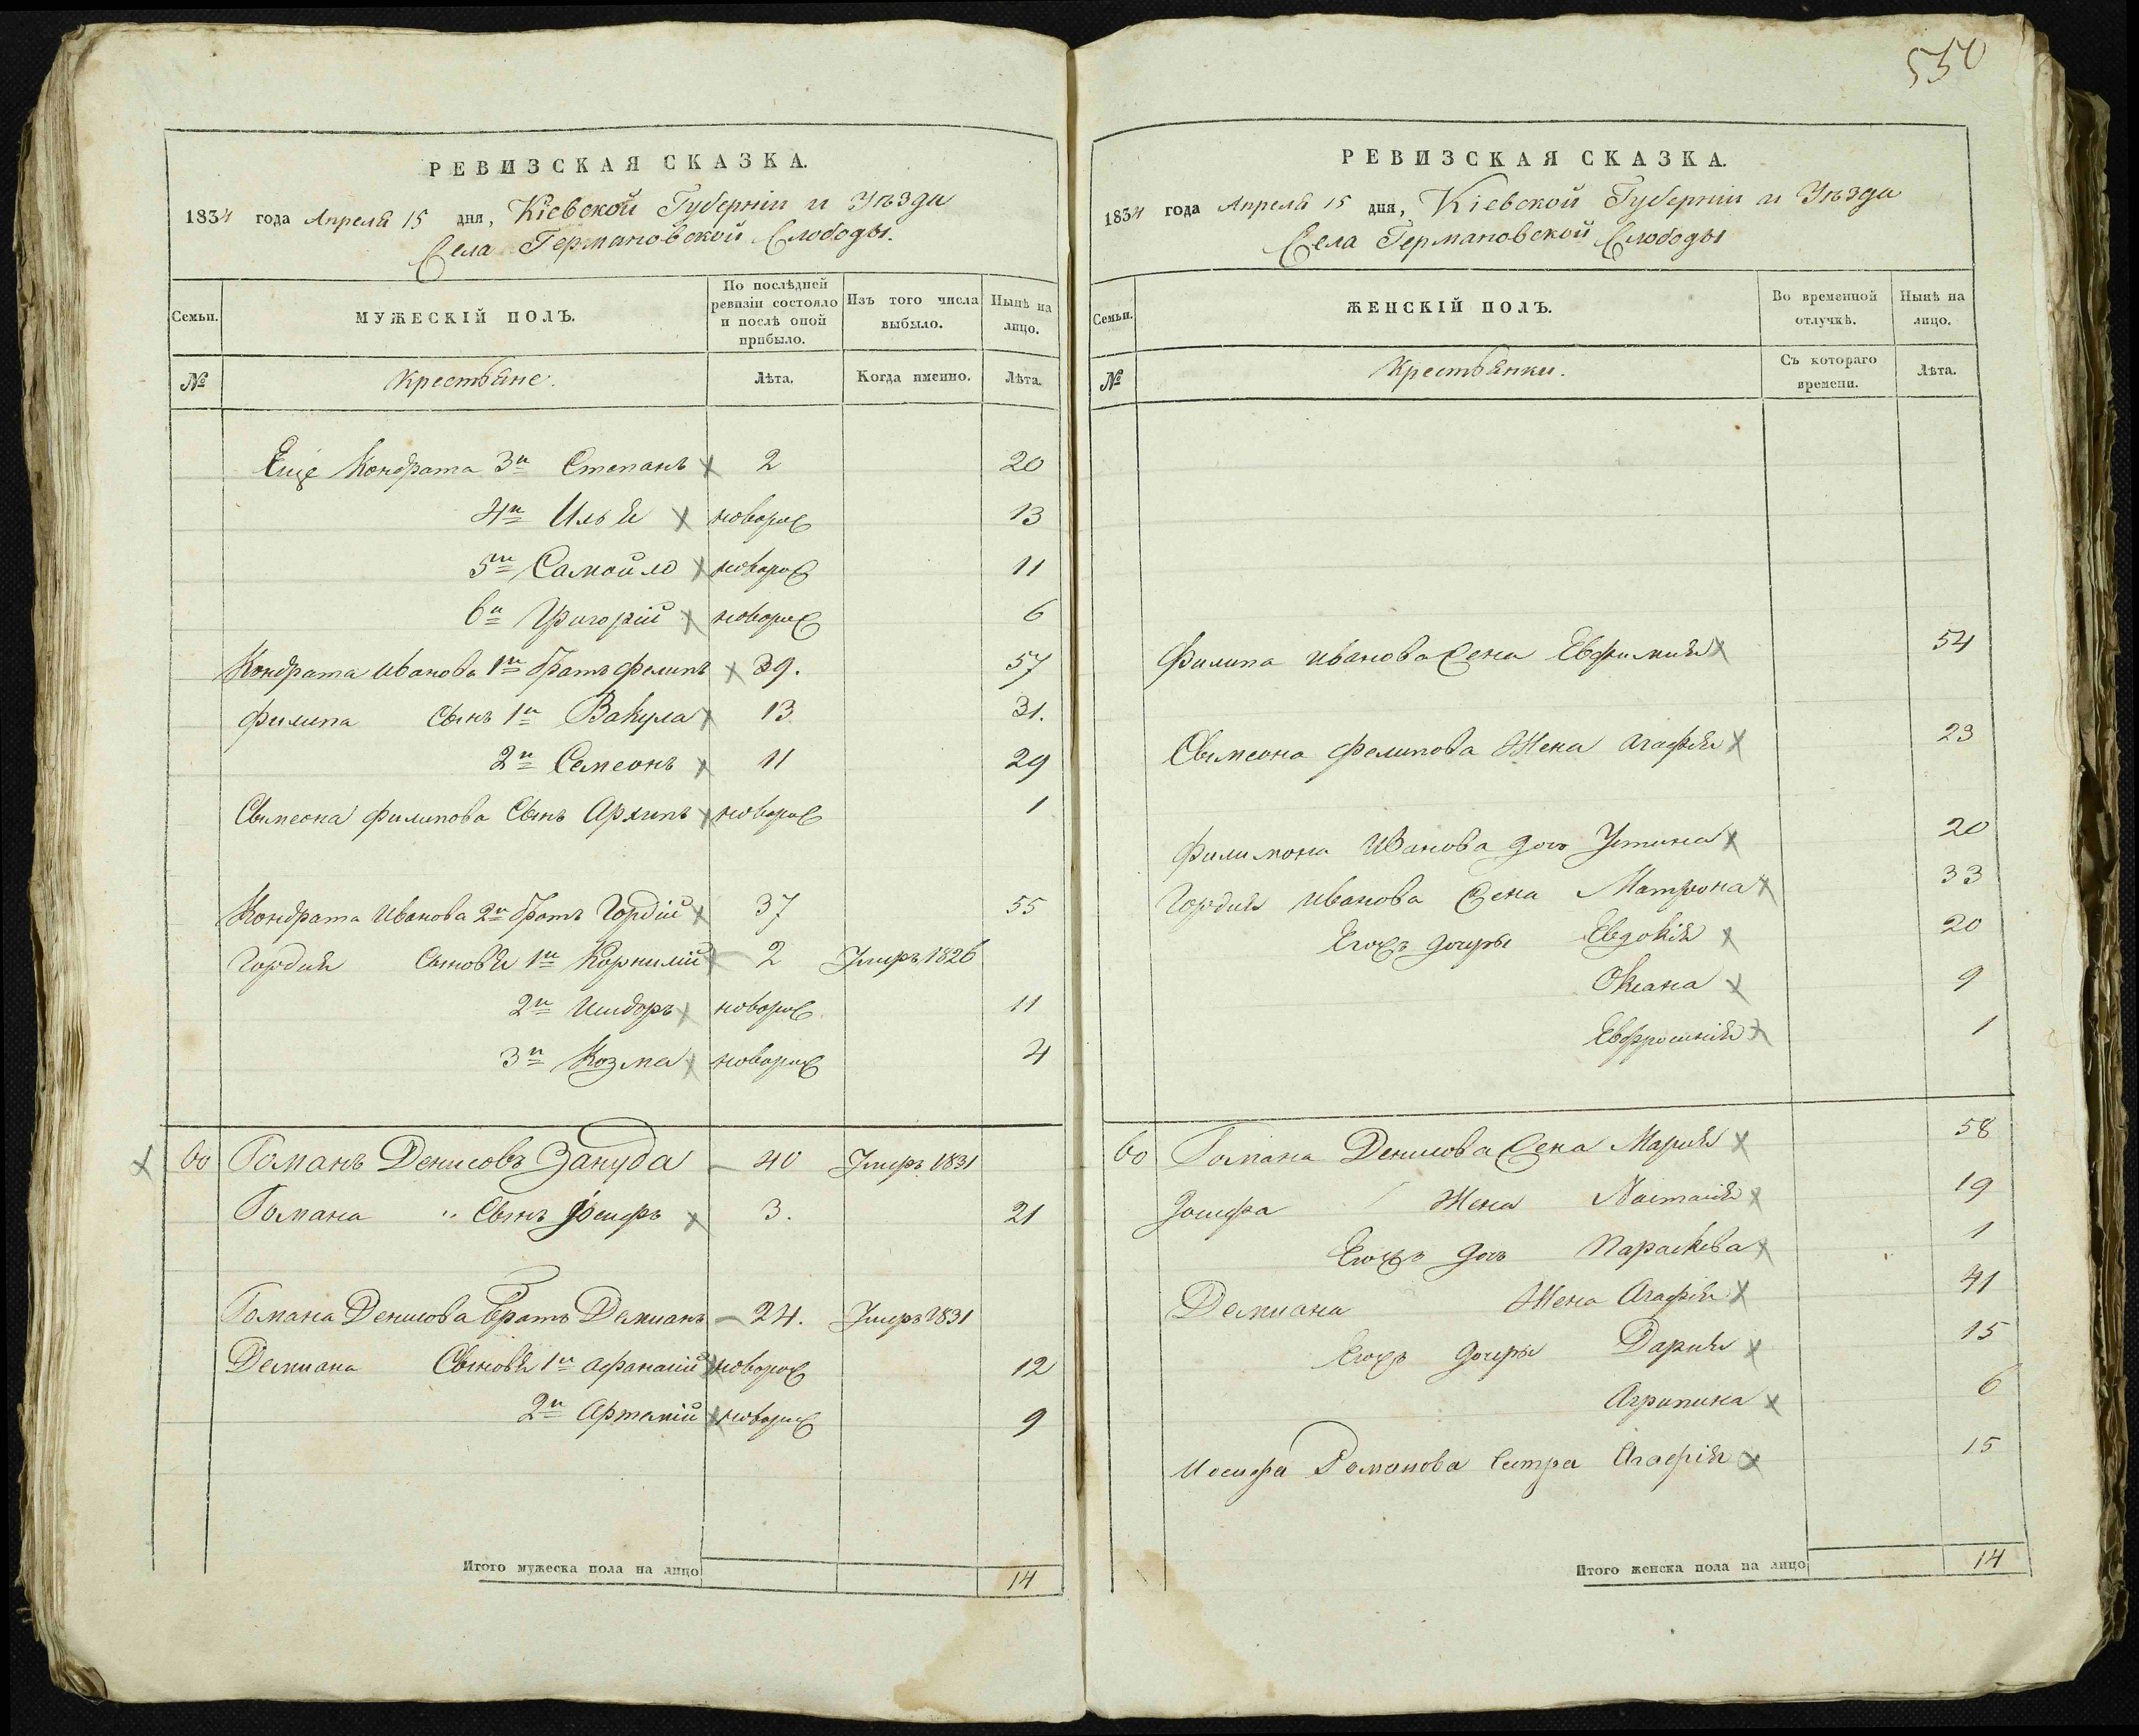 550
РЕВИЗСКАЯ СКАЗКА.
1834 года Апреля 15 дня, Кіевской Губерніи и Уѣзда
Села Германовской Слободы.
Семьи. МУЖЕСКІЙ ПОЛЪ. По послѣдней ревизіи состояло и послѣ оной прибыло. Изъ того числа выбыло. Нынѣ на лицо.
№ Крестьяне. Лѣта. Когда именно. Лѣта.
Еще Кондрата 3й Степанъ 2 20
4й Илья новорож 13
5й Самойло новорож 11
6й Григорій новорож 6
Кондрата Иванова 1й братъ Филипъ 39. 57
Филипа Сынъ 1й Вакула 13 31.
2й Семеонъ 11 29
Сымеона Филипова Сынъ Архипъ новорож 1
Кондрата Иванова 2й братъ Гордій 37 55
Гордия Сыновья 1й Корнилий 2 Умеръ 1826
2й Исидоръ новорож 11
3й Козма новорож 4
60 Романъ Денисовъ Зануда 40 Умеръ 1831
Романа " Сынъ Іосифъ 3. 21
Романа Денисова братъ Демианъ 24. Умеръ 1831
Демиана Сыновья 1й Афанасий новорож 12
2й Артемий новорож 9
Итого мужеска пола на лицо 14
РЕВИЗСКАЯ СКАЗКА.
1834 года Апреля 15 дня, Кіевской Губерніи и Уѣзда
Села Германовской Слободы
Семьи. ЖЕНСКІЙ ПОЛЪ. Во временной отлучкѣ. Нынѣ на лицо.
№ Крестьянки. Съ котораго времени. Лѣта.
Филипа Иванова жена Евфимия 54
Сымеона Филипова Жена Агафия 23
Филимона Иванова дочь Устина 20
Гордия Иванова жена Матрона 33
Егожъ дочеры Евдокія 20
Оксана 9
Евфросинія 1
60 Романа Денисова жена Мария 58
Іосифа Жена Настасия 19
Егожъ дочь Параскева 1
Демиана Жена Агафія 41
Егожъ дочеры Дария 15
Агрипина 6
Иосифа Романова Систра Агафія 15
Итого женска пола на лицо 14